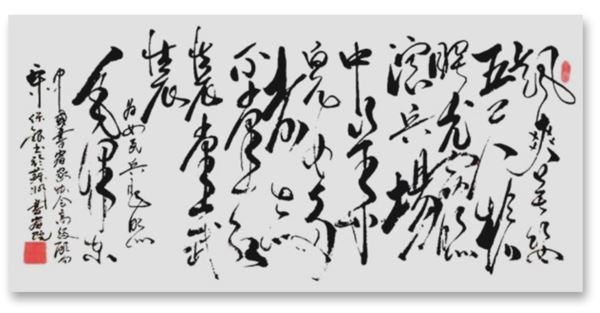 飒爽英姿
五尺枪
曙光初照
演兵場
中华
兒女多
奇志
不爱红
装爱武
装
为女民兵题照
毛泽东
中国书画家协会高级顾问
书画院